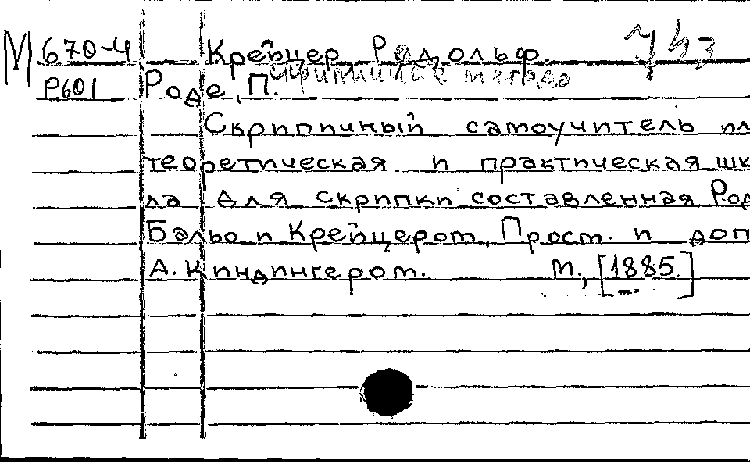 М 670-4 Крейцер Родольф.
Р601 Роде, П.
Скрипичный самоучитель ил
теоретическая и практическая шк
ла для скрипки составленная Род
Бальо и Крейцером. Прост. и доп
А. Киндингером. М., [1885.]